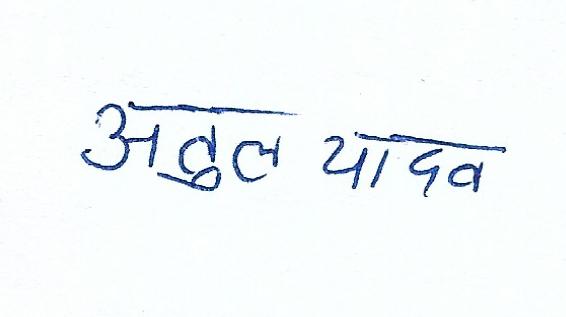 अतुल यादव